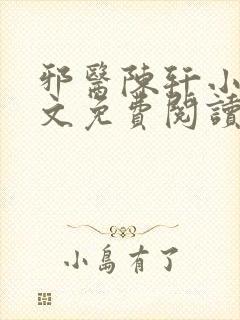 邪醫陳轩小
文免費閱讀
小島有了